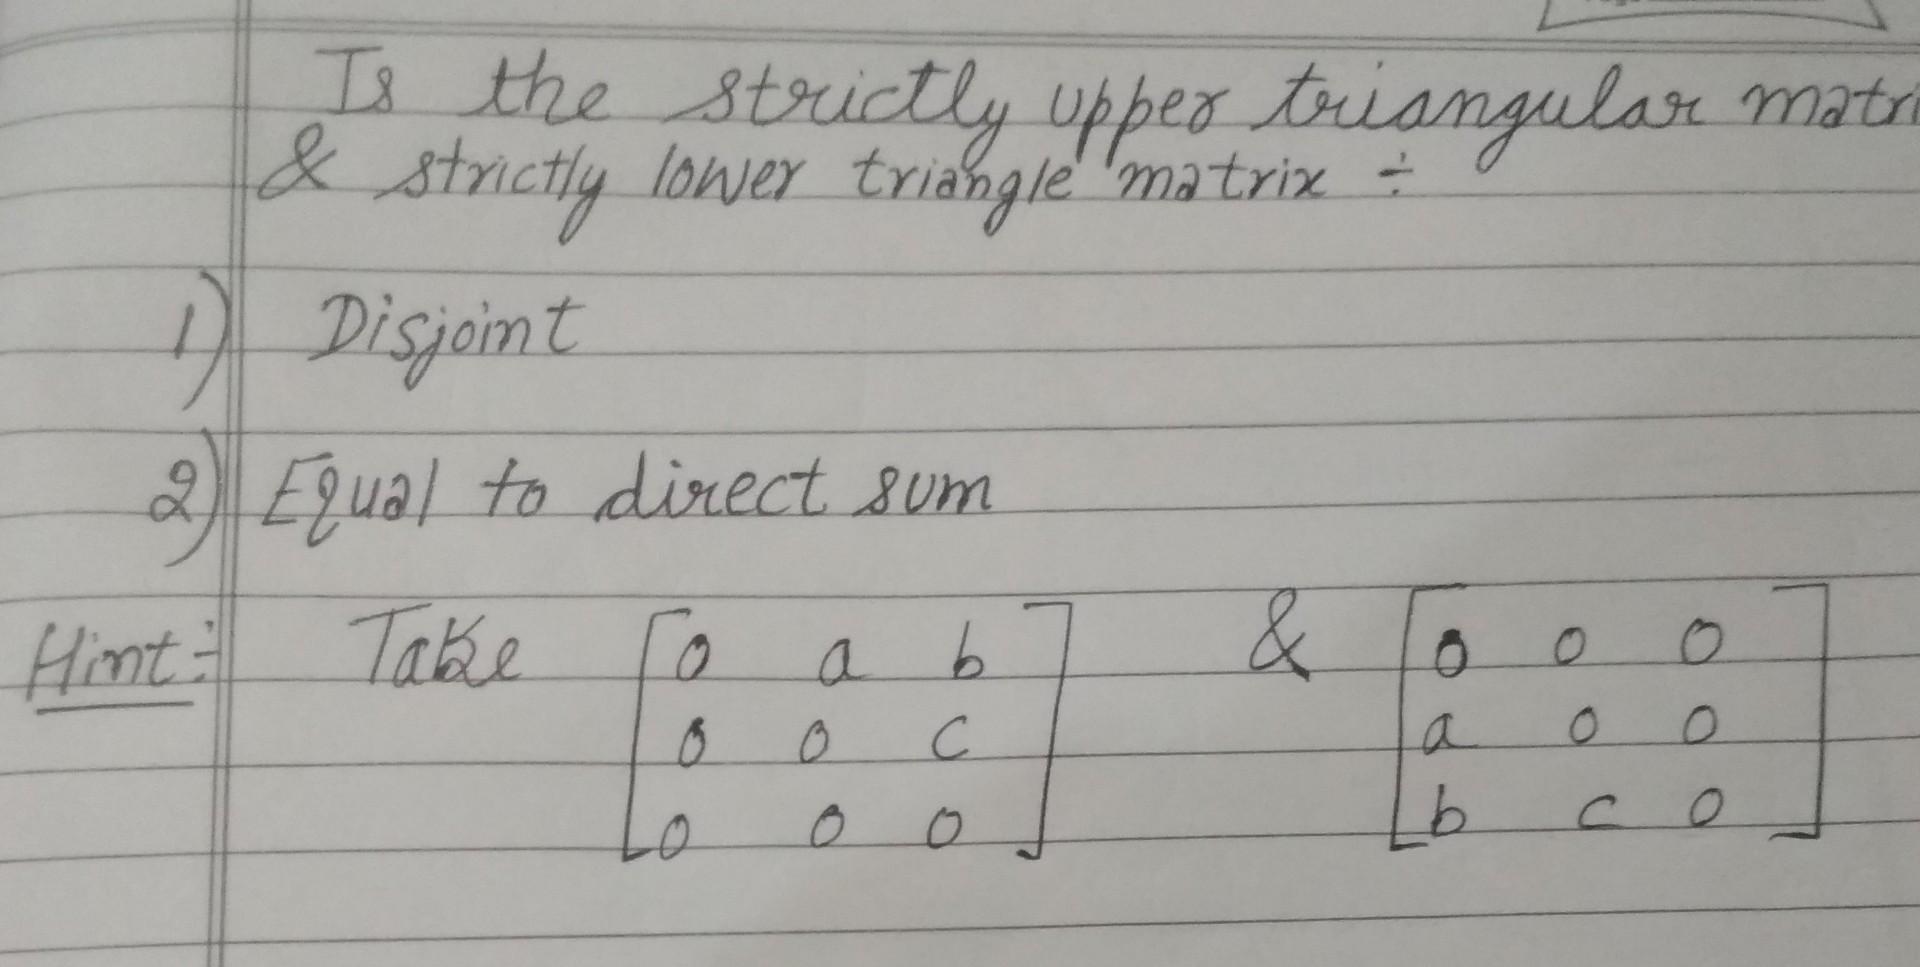 Is the strictly upper triangular matri
& strictly lower triangle matrix ÷
1) Disjoint
2) Equal to direct sum
Hint:- Take [0 a b & [0 0 0
0 0 c a 0 0
0 0 0] b c 0]